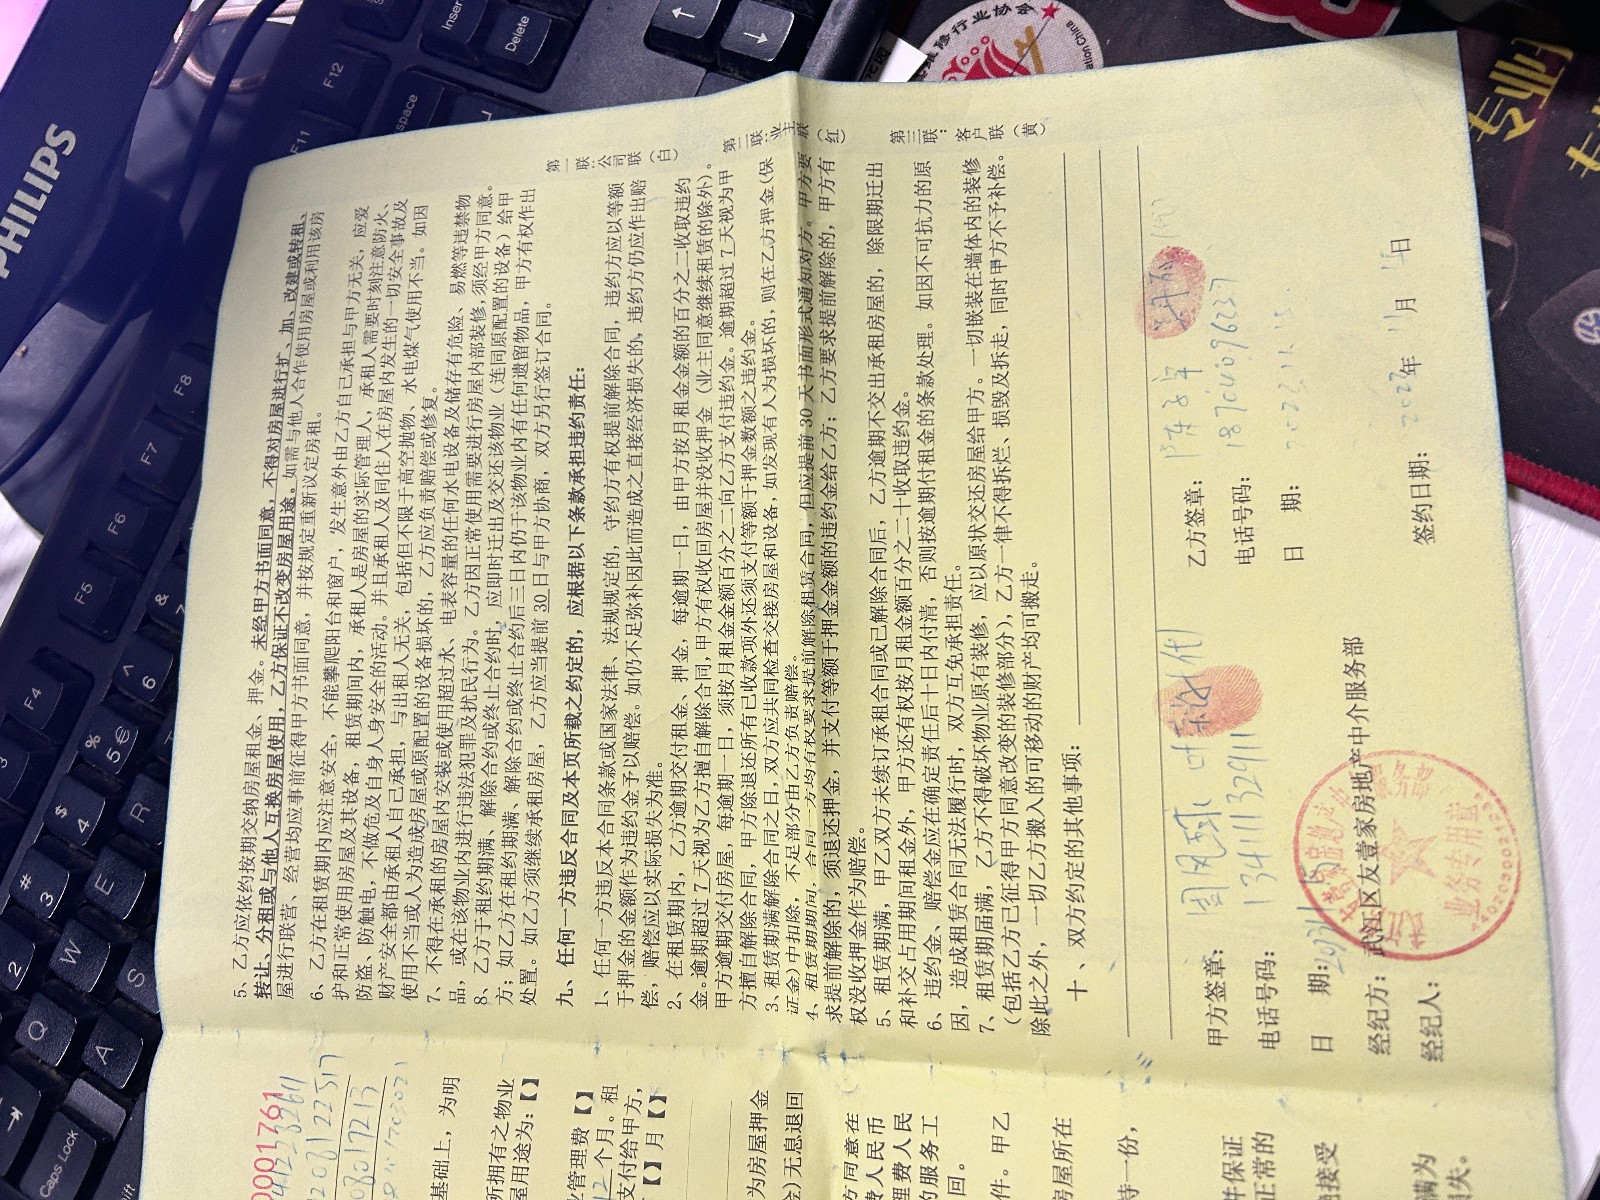 5、乙方应依约按期交纳房屋租金、押金。未经甲方书面同意，不得对房屋进行扩、加、改建或转租、
转让、分租或与他人互换房屋使用，乙方保证不改变房屋用途。如需与他人合作使用房屋或利用该房
屋进行联营、经营均应事前征得甲方书面同意，并按规定重新议定房租。
6、乙方在租赁期内应注意安全，不能攀爬阳台和窗户，发生意外由乙方自己承担与甲方无关，应爱
护和正常使用房屋及其设备，租赁期间内，承租人是房屋的实际管理人，承租人需要时刻注意防火、
防盗、防触电，不做危及自身人身安全的活动。并且承租人及同住人在房屋内发生的一切安全事故及
财产安全都由承租人自己承担，与出租人无关，包括但不限于高空抛物、水电煤气使用不当。如因
使用不当或人为造成房屋或原配置的设备损坏的，乙方应负责赔偿或修复。
7、不得在承租的房屋内安装或使用超过水、电表容量的任何水电设备及储存有危险、易燃等违禁物
品，或在该物业内进行违法犯罪及扰民行为。乙方因正常使用需要进行房屋内部装修，须经甲方同意。
8、乙方于租约期满、解除合约或终止合约时，应即时迁出及交还该物业（连同原配置的设备）给甲
方；如乙方在租约期满、解除合约或终止合约后三日内仍于该物业内有任何遗留物品，甲方有权作出
处置。如乙方须继续承租房屋，乙方应当提前 30 日与甲方协商，双方另行签订合同。
九、任何一方违反合同及本页所载之约定的，应根据以下条款承担违约责任：
1、任何一方违反本合同条款或国家法律、法规规定的，守约方有权提前解除合同，违约方应以等额
于押金的金额作为违约金予以赔偿。如仍不足弥补因此而造成之直接经济损失的，违约方仍应作出赔
偿，赔偿应以实际损失为准。
2、在租赁期内，乙方逾期交付租金、押金，每逾期一日，由甲方按月租金金额的百分之二收取违约
金。逾期超过 7 天视为乙方擅自解除合同，甲方有权收回房屋并没收押金（业主同意继续租赁的除外）。
甲方逾期交付房屋，每逾期一日，须按月租金金额百分之二向乙方支付违约金。逾期超过 7 天视为甲
方擅自解除合同，甲方除退还所有已收款项外还须支付等额于押金数额之违约金。
3、租赁期满解除合同之日，双方应共同检查交接房屋和设备，如发现有人为损坏的，则在乙方押金（保
证金）中扣除，不足部分由乙方负责赔偿。
4、租赁期期间，合同一方均有权要求提前解除租赁合同，但应提前 30 天书面形式通知对方。甲方要
求提前解除的，须退还押金，并支付等额于押金金额的违约金给乙方；乙方要求提前解除的，甲方有
权没收押金作为赔偿。
5、租赁期满，甲乙双方未续订承租合同或已解除合同后，乙方逾期不交出承租房屋的，除限期迁出
和补交占用期间租金外，甲方还有权按月租金额百分之二十收取违约金。
6、违约金、赔偿金应在确定责任后十日内付清，否则按逾期付租金的条款处理。如因不可抗力的原
因，造成租赁合同无法履行时，双方互免承担责任。
7、租赁期届满，乙方不得破坏物业原有装修，应以原状交还房屋给甲方。一切嵌装在墙体内的装修
（包括乙方已征得甲方同意改变的装修部分），乙方一律不得拆烂、损毁及拆走，同时甲方不予补偿。
除此之外，一切乙方搬入的可移动的财产均可搬走。
十、双方约定的其他事项：
甲方签章：
电话号码：13411132911
日 期：
经纪方：武江区友壹家房地产中介服务部
经纪人：
乙方签章：
电话号码：18704096237
日 期：
签约日期：2022年 11月 日
第一联：公司联（白）
第二联：业主联（红）
第三联：客户联（黄）
业务专用章
0001761
基础上，为明
所拥有之物业
屋用途为：【】
业管理费【】
12 个月。租
支付给甲方，
【】月【】
为房屋押金
金）无息退回
方同意在
费人民币
理费人民
的服务工
回。
件。甲乙
房屋所在
持一份，
并保证
正常的
接受
满为
失。
PHILIPS
Insert
Delete
↑
↓
F12
F11
F8
F7
F6
F5
F4
Caps Lock
Q
A
W
S
E
R